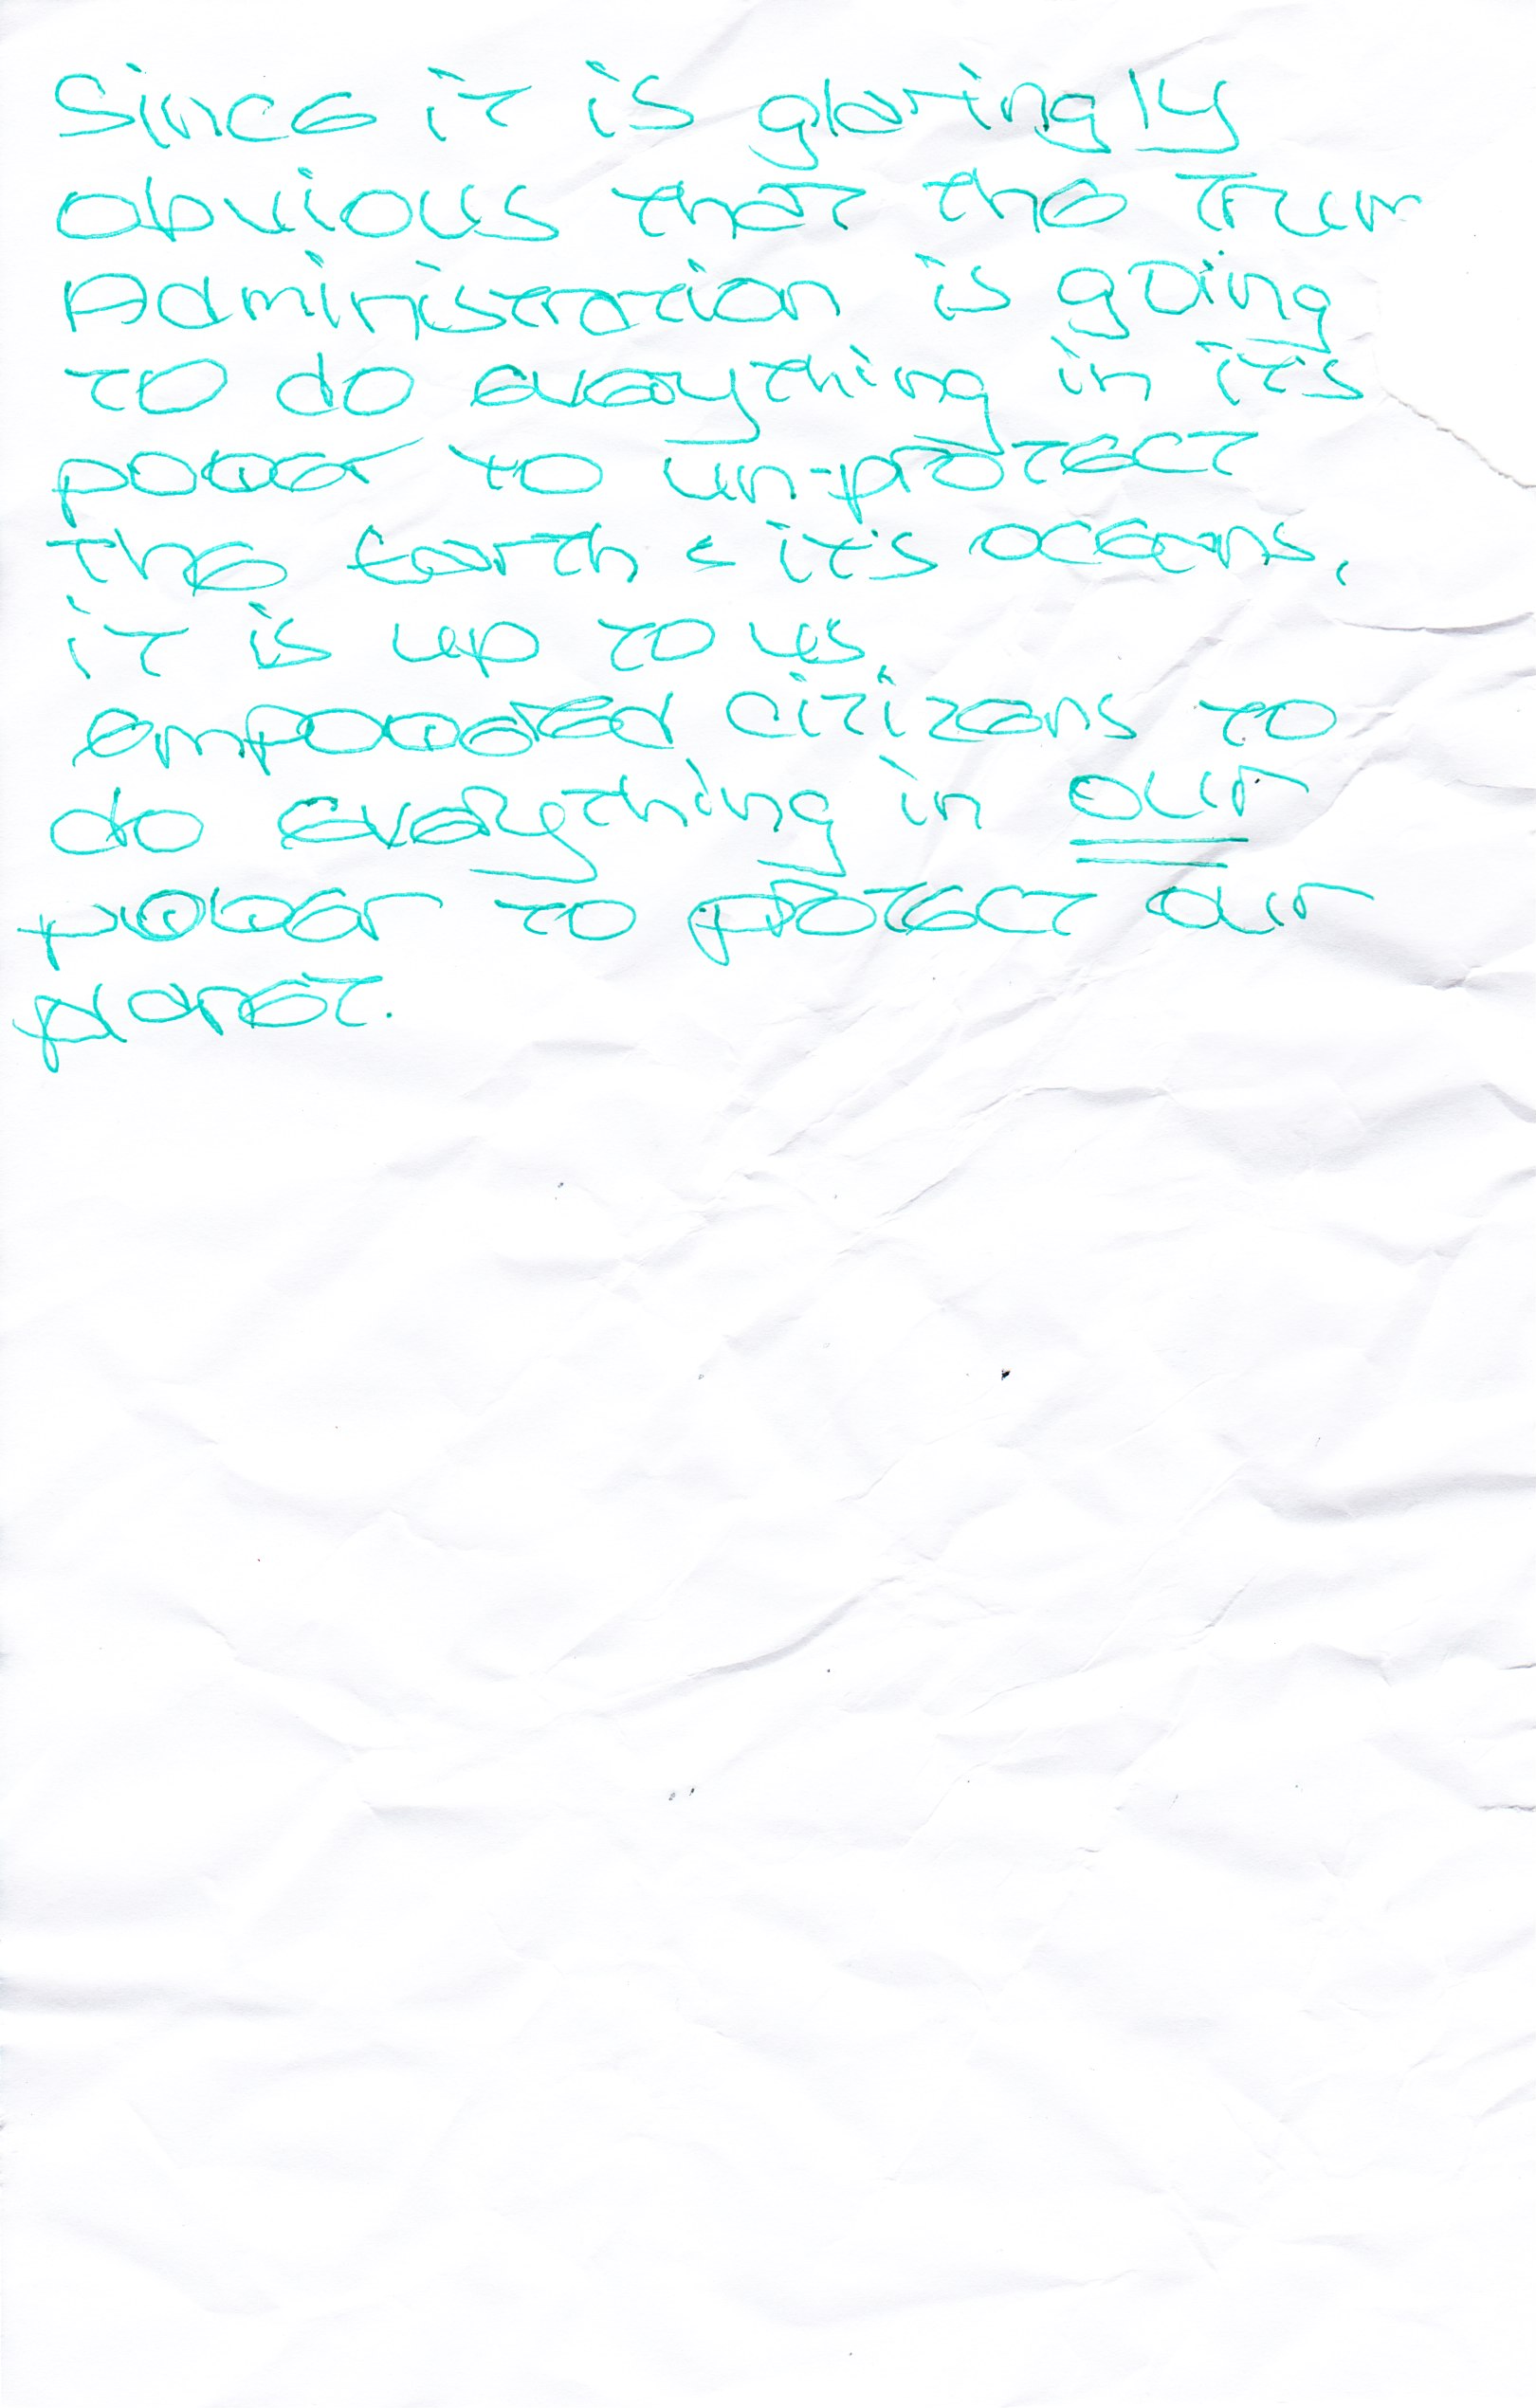 Since it is glaringly
obvious that the Trum
Administration is going
to do everything in it's
power to un-protect
the Earth & it's oceans,
it is up to us,
empowered citizens to
do everything in our
power to protect our
planet.